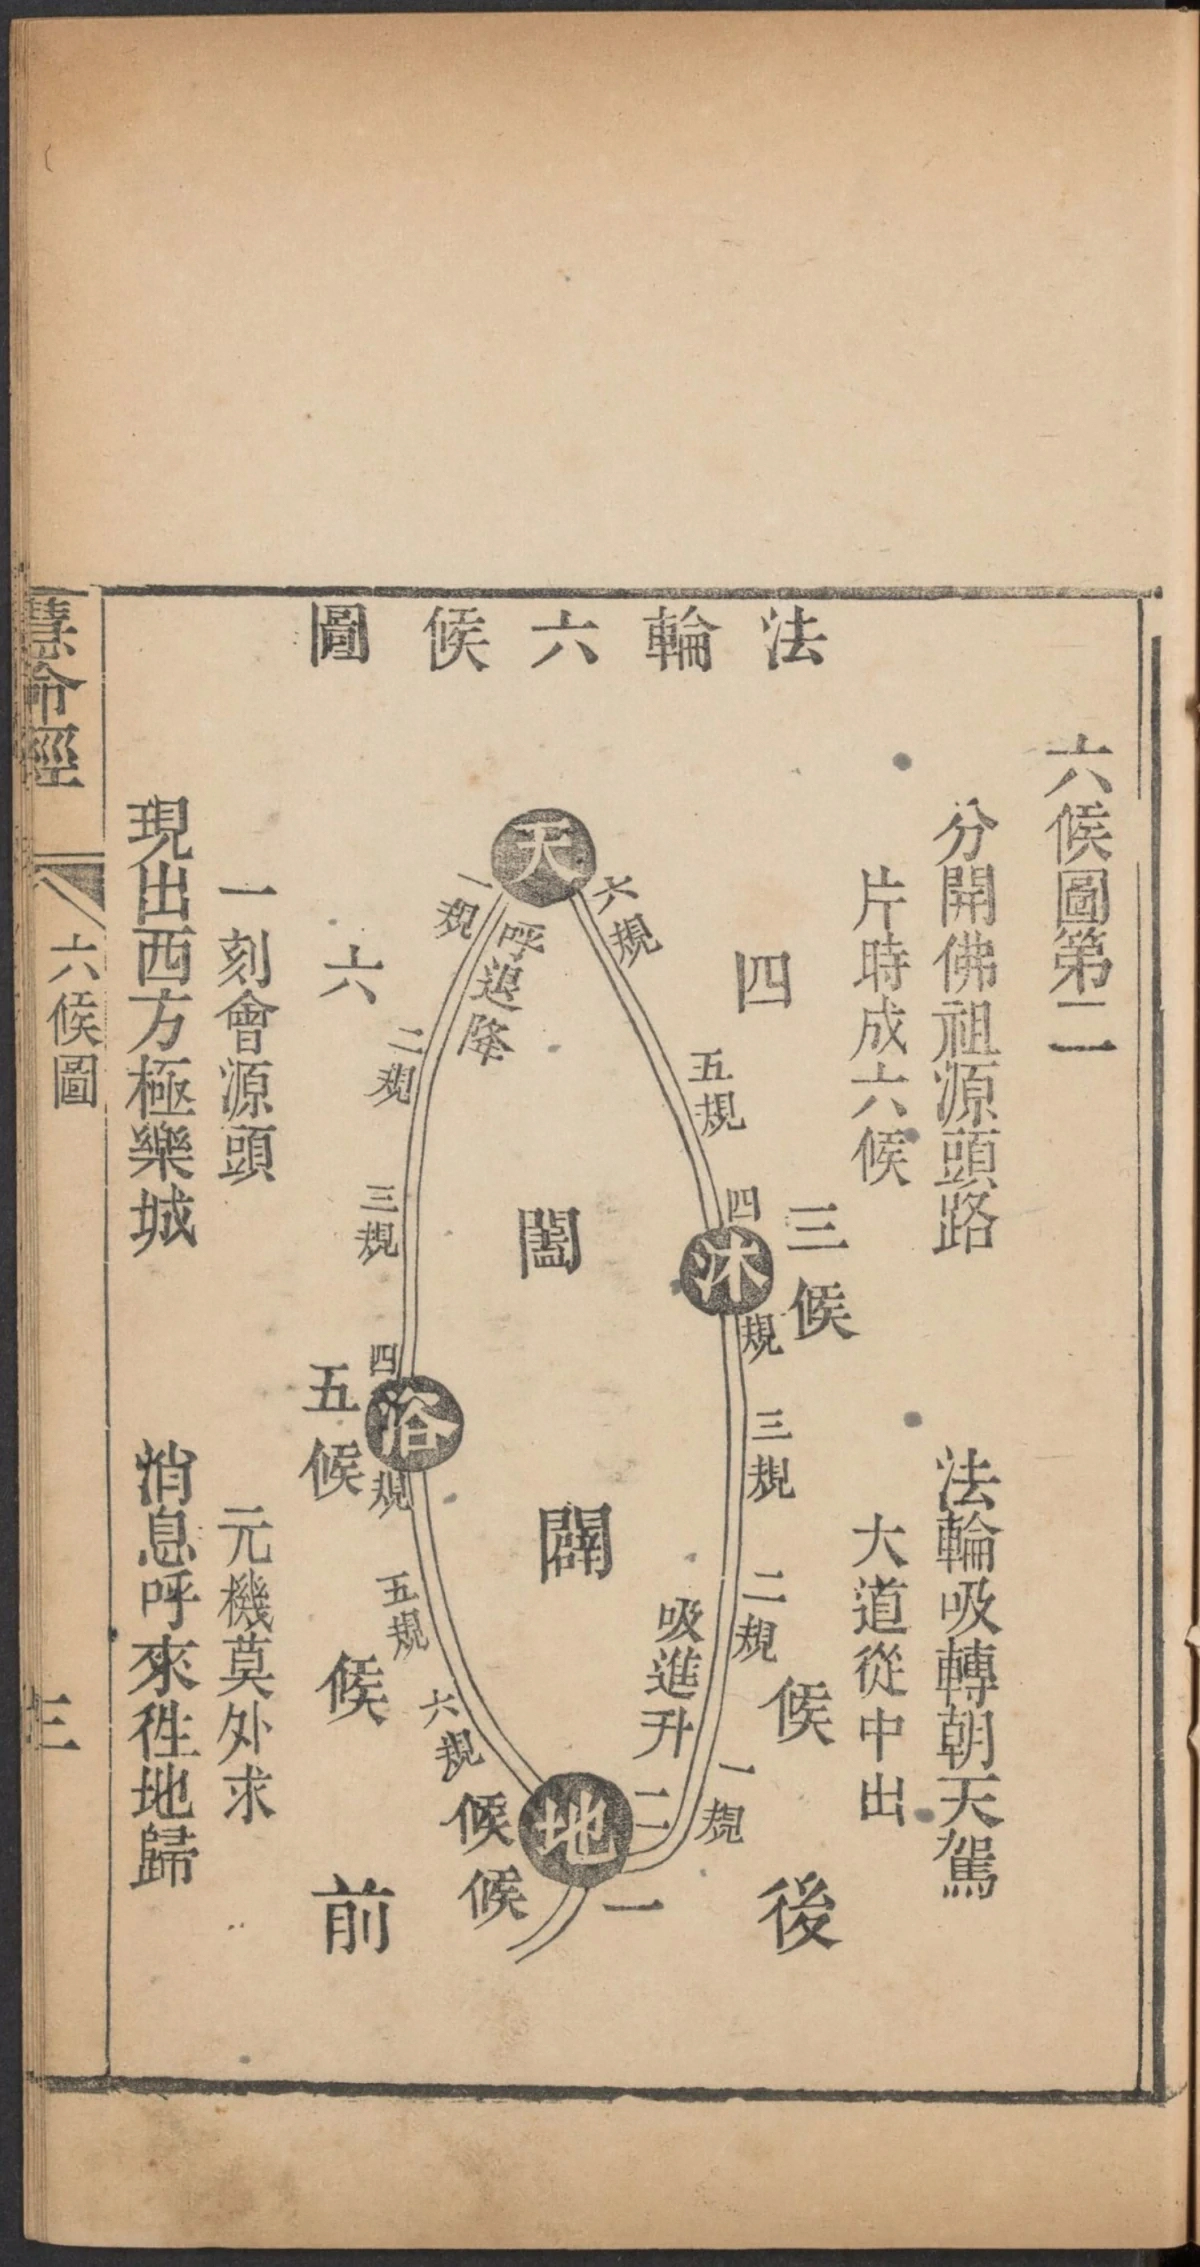 六候圖第二
法輪六候圖
分開佛祖源頭路
法輪吸轉朝天駕
片時成六候
大道從中出
天
六規
四
候
五規
四
沐
規
三候
三規
二規
吸進升
一規
二
候
地
一
候
後
前
闔
闢
一規
呼退降
六
候
二規
三規
四
浴
規
五候
五規
六規
一刻會源頭
元機莫外求
現出西方極樂城
消息呼來徃地歸
慧命經
六候圖
三